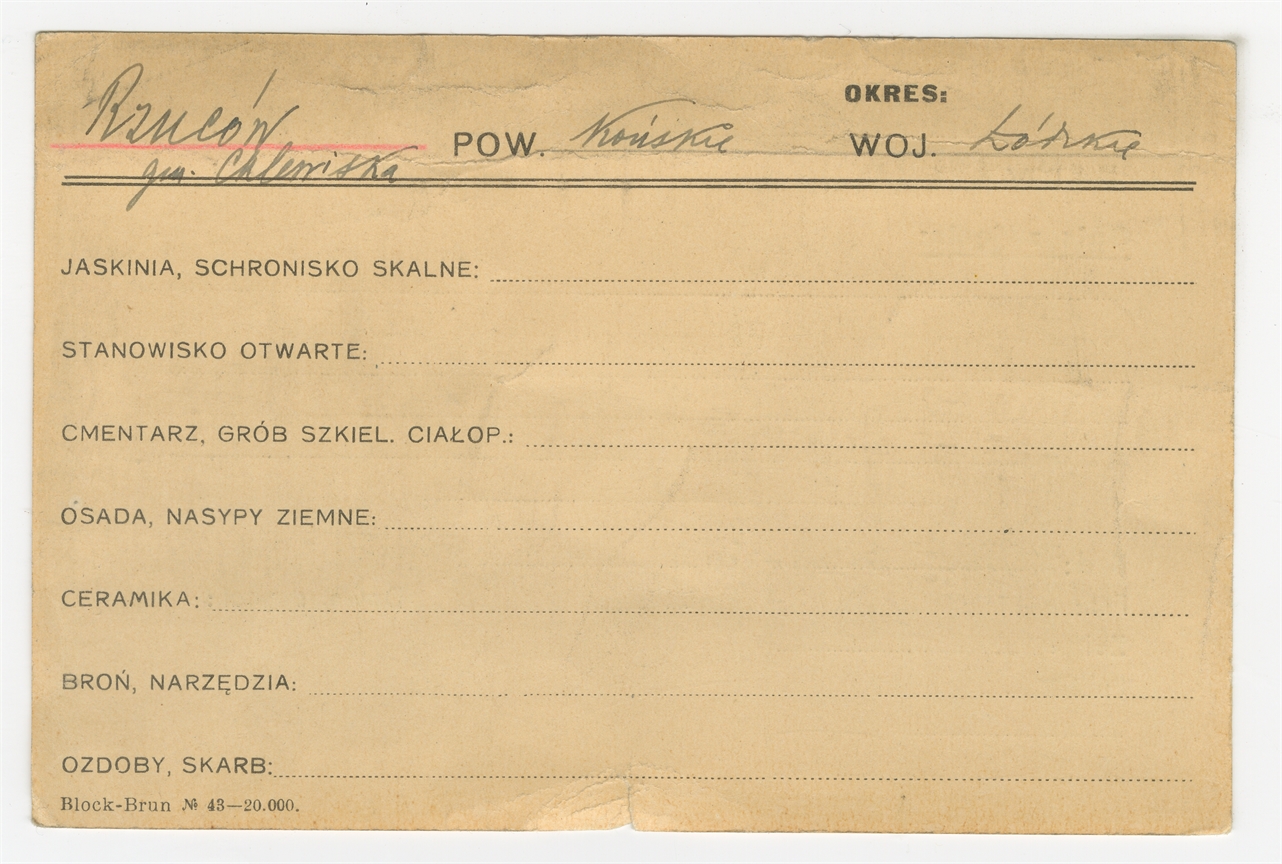 OKRES:
Rzuców POW. Końskie WOJ. Łódzkie
gm. Chlewiska
JASKINIA, SCHRONISKO SKALNE:
STANOWISKO OTWARTE:
CMENTARZ, GRÓB SZKIEL. CIAŁOP.:
OSADA, NASYPY ZIEMNE:
CERAMIKA:
BROŃ, NARZĘDZIA:
OZDOBY, SKARB:
Block-Brun № 43—20.000.